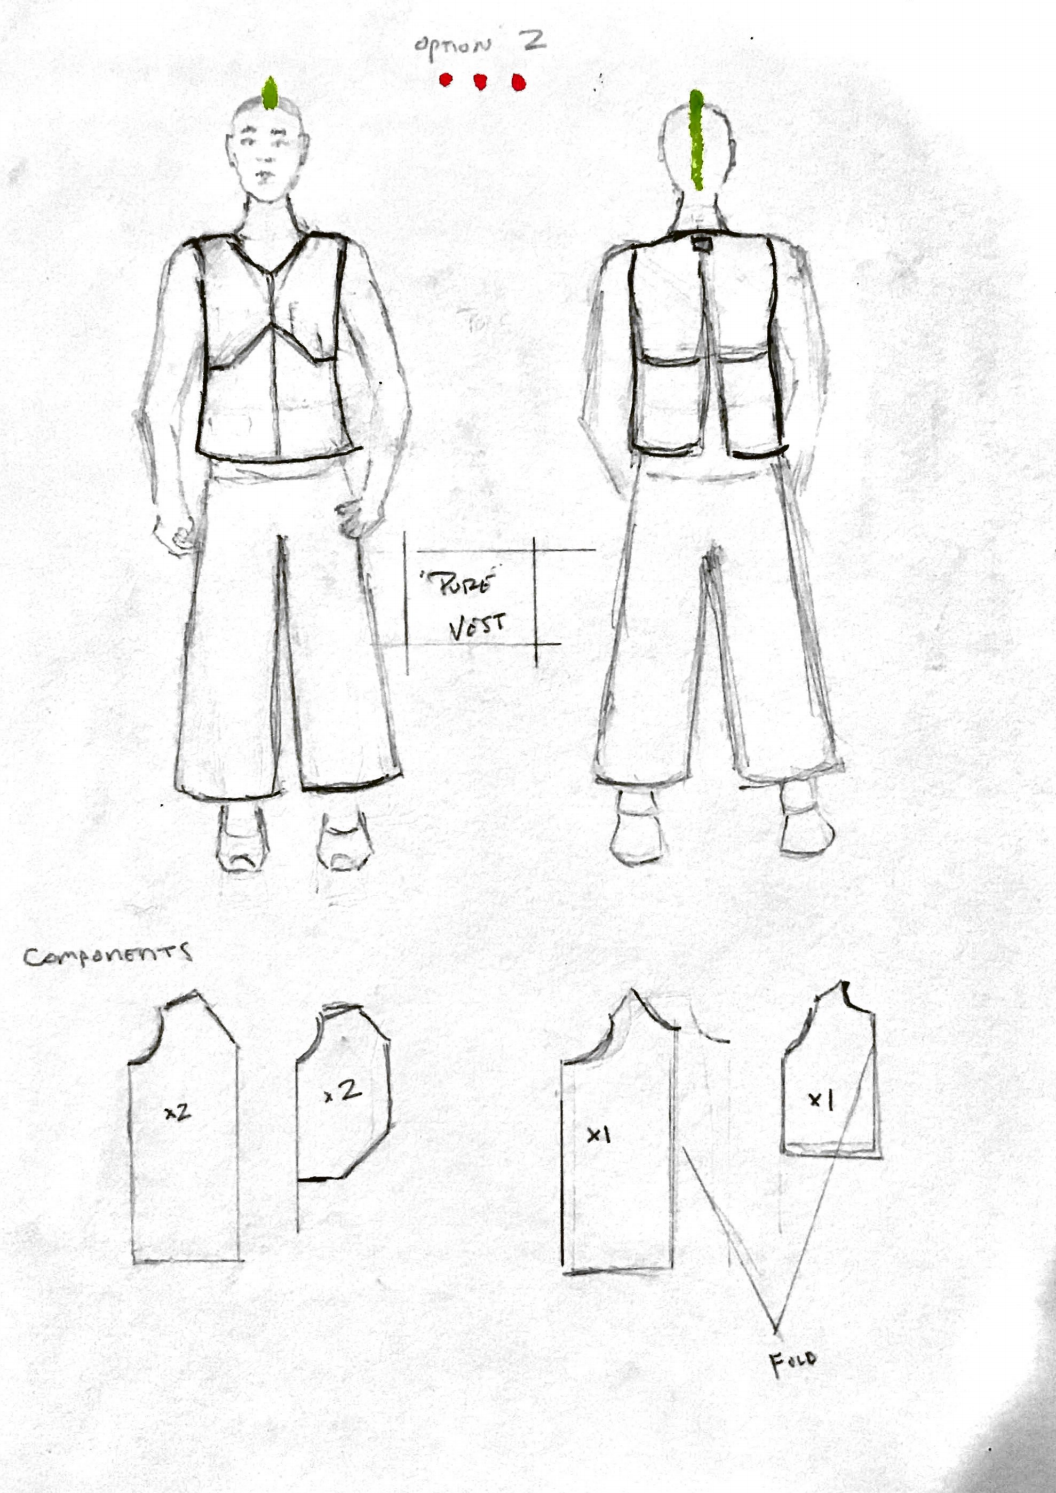 OPTION 2
"PURE"
VEST
COMPONENTS
x2
x2
x1
x1
FOLD